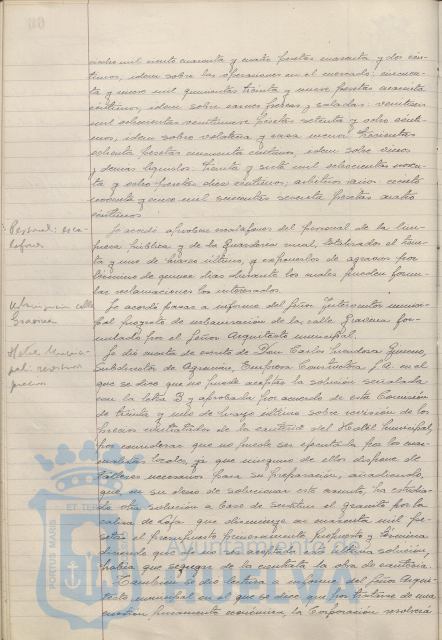 mil ciento cuarenta y cuatro pesetas cuarenta y dos cén-
timos; idem sobre las operaciones en el mercado: cincuen-
ta y nueve mil quinientas treinta y nueve pesetas cuarenta
céntimos; idem sobre carnes frescas y saladas: veintiseis
mil ochocientas veintinueve pesetas setenta y ocho cénti-
mos; idem sobre volateria y caza menor: trescientas
ochenta pesetas cincuenta céntimos; idem sobre vinos
y demas liquidos: treinta y siete mil ochocientas noven-
ta y ocho pesetas doce céntimos; arbitrios varios: ciento
noventa y nueve mil pesetas cuatro
céntimos.
Personal: esca-
lafones
Se acordó aprobar escalafones del personal de la lim-
pieza pública y de la Guardería rural, el trein-
ta y uno de marzo último, y exponerlos de agravios por
término de quince dias durante los cuales pueden formu-
lar reclamaciones los interesados.
Urbanización calle
Gravina
Se acordó pasar a informe del Señor Interventor munici-
pal proyecto de urbanización de la calle Gravina for-
mulado por el Señor Arquitecto municipal.
Hotel Munici-
pal: revision
precios
Se dió cuenta de escrito de Don Carlos Mendoza Gimeno,
Subdirector de Agroman, Empresa Constructora S.A. en el
que se dice que no puede aceptar la solución señalada
con la letra B y aprobada por acuerdo de esta Comisión
de treinta y uno de marzo último sobre revisión de los
precios de la cantería del Hotel Municipal,
por considerar que no puede ser ejecutada por los can-
locales, ya que ninguno de ellos dispone de
talleres necesarios para su preparación, añadiendo
que, en su deseo de solucionar este asunto, ha estudia-
do otra solución a base de sustituir el granito por la
caliza de que disminuye en cuarenta mil pe-
setas el presupuesto primeramente propuesto y termina
diciendo que si no era aceptada la última solución,
habia que segregar de la contrata la obra de cantería.
Tambien se dió lectura a informe del Señor Arqui-
tecto municipal en el que se dice que por tratarse de una
cuestión puramente económica, la Corporación resolverá
PORTUS MAGNUS
ET TER
Ayuntamiento de